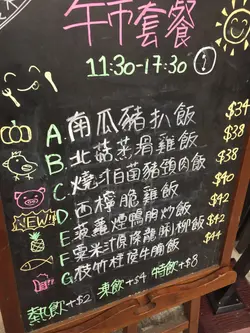 午市套餐
11:30-17:30
A. 南瓜豬扒飯 $34
B. 北菇蒸滑雞飯 $38
C. 燒汁白菌豬頸肉飯 $40
NEW! D. 西檸脆雞飯 $42
E. 菠蘿煙鴨肉炒飯 $42
F. 粟米汁原條龍脷柳飯 $44
G. 枝竹柱侯牛腩飯 $44
熱飲+$2 凍飲+$4 特飲+$8